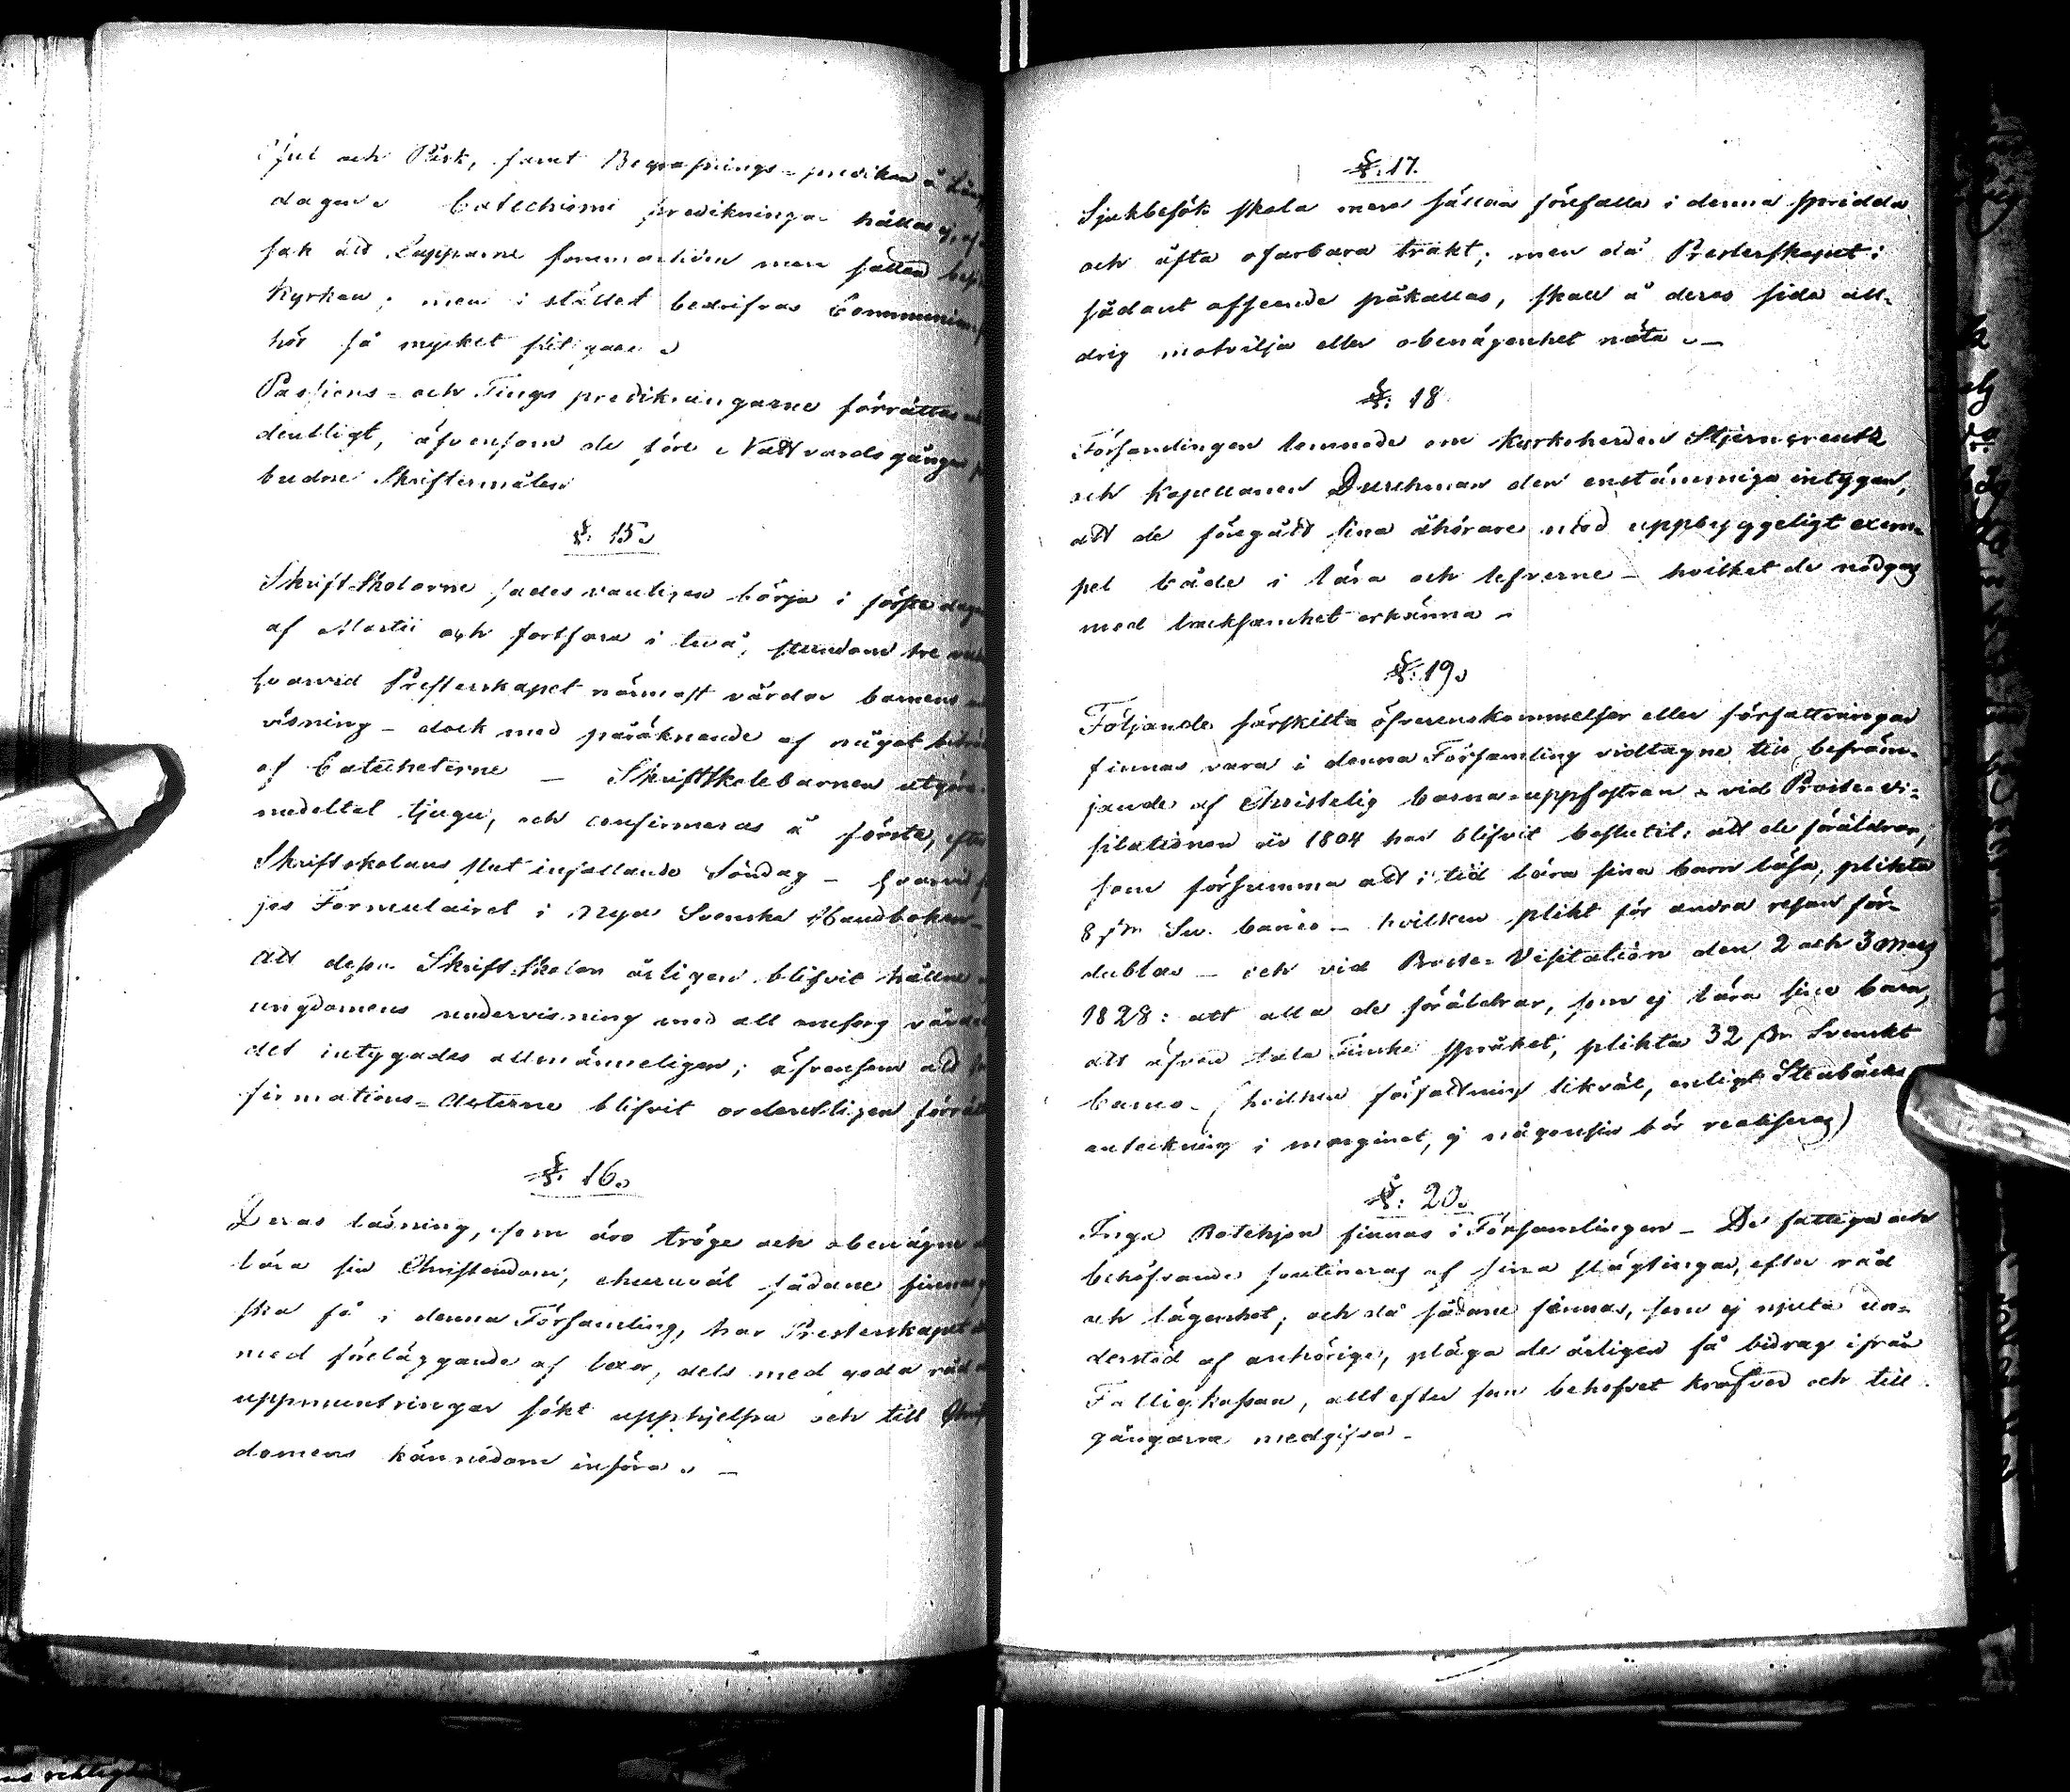 Jul och Påsk, samt Begrafnings-predikan å Lång
dagen. Catechismi predikningar hållas ej, af
sak att Lapparne sommartiden mera sällan besö
Kyrkan; men i stället bedrifvas Communion
hör så mycket flitigare.
Passions- och Tings predikningarne förrättas
dentligt, äfvensom de före Nattvardsgången
budne Skriftermålen
§. 15.
Skrift-Skolorne sades vanligen börja i första dagar
af Martii och fortfara i två, stundom tre
hvarvid Presterskapet närmast vårdar barnens
visning – dock med påräknande af något biträ
af Catecheterne – Skriftskolebarnen utgöra
medeltal tjugu, och confirmeras å första, efter
Skriftskolans slut infallande Söndag – hvarvid
jes Formulairet i Nya Svenska Handboken –
Att dessa Skrift-Skolor årligen blifvit hållne
ungdomens undervisning med all omsorg vårdad
det intygades allmänneligen; äfvensom att
firmations-Acterne blifvit ordentligen förrätt
§. 16.
Deras läsning, som äro tröge och obenägne
lära sin Christendom, churuväl sådane finnas
ska få i denna Församling, har Presterskapet
med föreläggande af lexor, dels med goda råd
uppmuntringar sökt upphjelpa och till Christ
domens kännedom införa. –
§. 17.
Sjukbesök skola mera sällan förefalla i denna spridda
och ofta ofarbara trakt; men då Presterskapet i
sådant afseende påkallas, skall å deras sida all-
drig motvilja eller obenägenhet möta. –
§. 18
Församlingen lemnade om Kyrkoherden Stjerncreutz
och Kapellanen Durchman den enstämmiga intygan,
att de föregått sina åhörare med uppbyggeligt exem-
pel både i lära och lefverne – hvilket de nödgas
med tacksamhet erkänna –
§. 19.
Följande särskilta öfverenskommelser eller författningar
finnas vara i denna Församling vidtagne till befräm-
jande af Christelig barna-uppfostran – vid Proste-vi-
sitationen år 1804 har blifvit beslutit: att de föräldrar,
som försumma att i tid lära sina barn läsa, plikta
8 sk. Sv. banco – hvilken plikt för andra resan för-
dublas – och vid Proste-Visitation den 2 och 3 Mars
1828: att alla de föräldrar, som ej lära sina barn,
att äfven tala Finska språket, plikta 32 sk. Svenskt
banco – (hvilken författning likväl, enligt Stenbäcks
anteckning i marginal, ej någonsin bör realiseras)
§. 20.
Inga Rotehjon finnas i Församlingen – De fattiga och
behöfvande soutineras af sina slägtingar, efter råd
och lägenhet; och då sådane finnas, som ej njuta un-
derstöd af anhörige, pläga de årligen få bidrag ifrån
Fattigkassan, allt efter som behofvet kräfver och till-
gångarne medgifva –